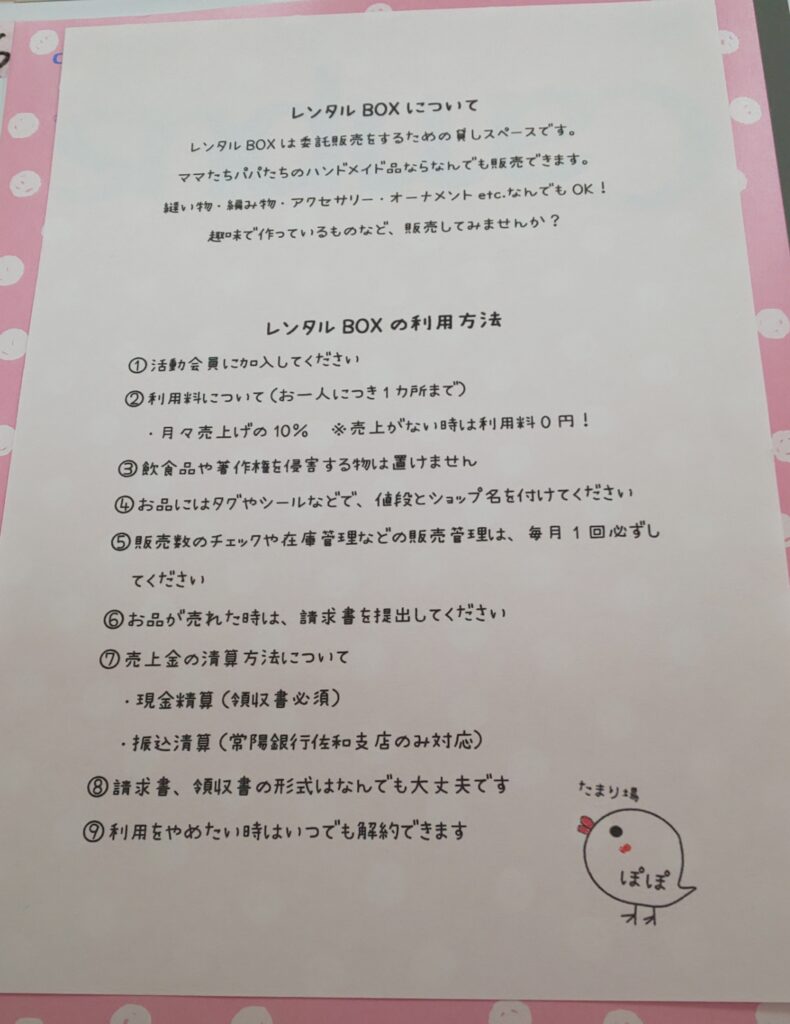 レンタル BOX について
レンタル BOX は委託販売をするための貸しスペースです。
ママたちパパたちのハンドメイド品ならなんでも販売できます。
縫い物・編み物・アクセサリー・オーナメント etc.なんでも OK！
趣味で作っているものなど、販売してみませんか？
レンタル BOX の利用方法
①活動会員に加入してください
②利用料について（お一人につき 1 カ所まで）
・月々売上げの 10％　※売上がない時は利用料 0 円！
③飲食品や著作権を侵害する物は置けません
④お品にはタグやシールなどで、値段とショップ名を付けてください
⑤販売数のチェックや在庫管理などの販売管理は、毎月 1 回必ずし
てください
⑥お品が売れた時は、請求書を提出してください
⑦売上金の清算方法について
・現金精算（領収書必須）
・振込清算（常陽銀行佐和支店のみ対応）
⑧請求書、領収書の形式はなんでも大丈夫です
⑨利用をやめたい時はいつでも解約できます
たまり場
ぽぽ